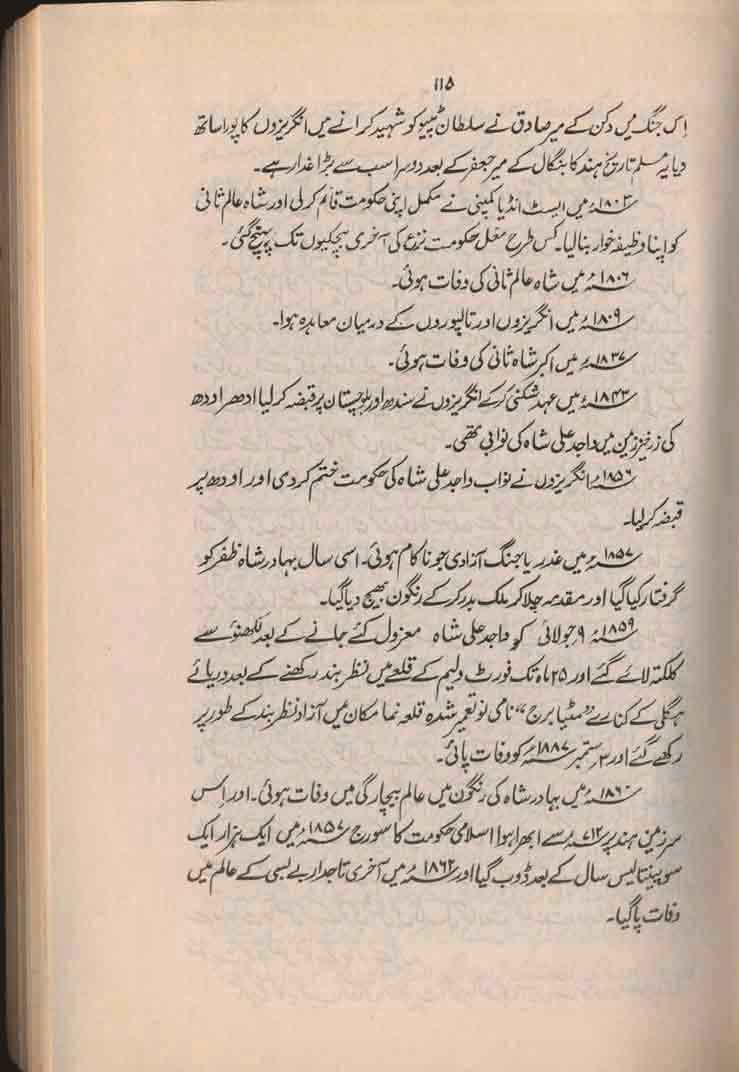 ۱۱۵
اِس جنگ میں دکن کے میر صادق نے سلطان ٹیپو کو شہید کرانے میں انگریزوں کا پورا ساتھ
دیا یہ مسلم تاریخ ہند کا بنگال کے میر جعفر کے بعد دوسرا سب سے بڑا غدار ہے۔
۱۸۰۳ء میں ایسٹ انڈیا کمپنی نے مکمل اپنی حکومت قائم کرلی اور شاہ عالم ثانی
کو اپنا وظیفہ خوار بنا لیا۔ کس طرح مغل حکومت نزع کی آخری ہچکیوں تک پہنچ گئی۔
۱۸۰۶ء میں شاہ عالم ثانی کی وفات ہوئی۔
۱۸۰۹ء میں انگریزوں اور تالپوروں کے درمیان معاہدہ ہوا۔
۱۸۳۷ء میں اکبر شاہ ثانی کی وفات ہوئی۔
۱۸۴۳ء میں عہد شکنی کرکے انگریزوں نے سندھ اور بلوچستان پر قبضہ کرلیا ادھر اودھ
کی زرخیز زمین میں واجد علی شاہ کی نوابی تھی۔
۱۸۵۶ء انگریزوں نے نواب واجد علی شاہ کی حکومت ختم کردی اور اودھ پر
قبضہ کرلیا۔
۱۸۵۷ء میں غدر یا جنگ آزادی جو ناکام ہوئی۔ اسی سال بہادر شاہ ظفر کو
گرفتار کیا گیا اور مقدمہ چلاکر ملک بدر کرکے رنگون بھیج دیا گیا۔
۱۸۵۹ء ۹ جولائی کو واجد علی شاہ معزول کئے جانے کے بعد لکھنؤ سے
کلکتہ لائے گئے اور ۲۵ ماہ تک فورٹ ولیم کے قلعے میں نظر بند رکھنے کے بعد دریائے
ہگلی کے کنارے ”مٹیا برج“ نامی نو تعمیر شدہ قلعہ نما مکان میں آزاد نظر بند کے طور پر
رکھے گئے اور ۳ ستمبر ۱۸۸۷ء کو وفات پائی۔
میں بہادر شاہ کی رنگون میں عالم بیچارگی میں وفات ہوئی۔ اور اِس
سرزمین ہند پر ۷۱۲ء سے ابھرا ہوا اسلامی حکومت کا سورج ۱۸۵۷ء میں ایک ہزار ایک
سو پینتالیس سال کے بعد ڈوب گیا اور ۱۸۶۲ء میں آخری تاجدار بے بسی کے عالم میں
وفات پاگیا۔